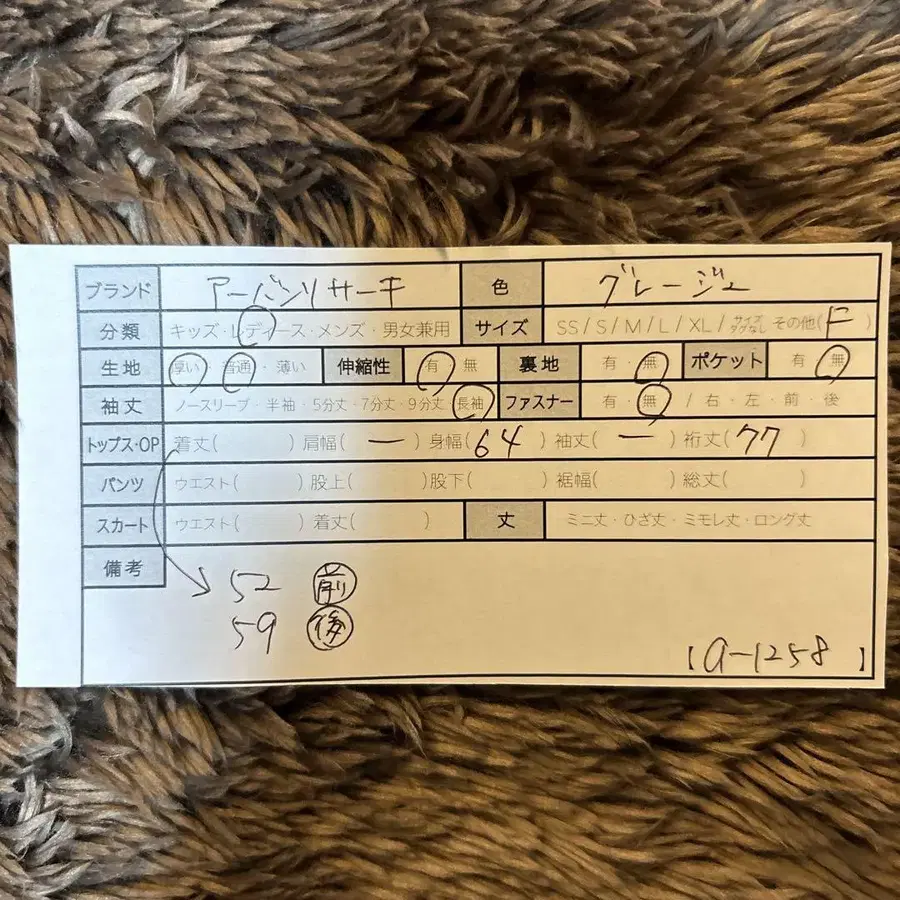 ブランド アーバンリサーチ 色 グレージュ
分類 キッズ・レディース・メンズ・男女兼用 サイズ SS / S / M / L / XL / サイズタグなし その他( F )
生地 厚い・普通・薄い 伸縮性 有・無 裏地 有・無 ポケット 有・無
袖丈 ノースリーブ・半袖・5分丈・7分丈・9分丈・長袖 ファスナー 有・無 / 右・左・前・後
トップス・OP 着丈( ) 肩幅( ー ) 身幅( 64 ) 袖丈( ー ) 裄丈( 77 )
パンツ ウエスト( ) 股上( ) 股下( ) 裾幅( ) 総丈( )
スカート ウエスト( ) 着丈( ) 丈 ミニ丈・ひざ丈・ミモレ丈・ロング丈
備考
52 前
59 後
【a-1258】